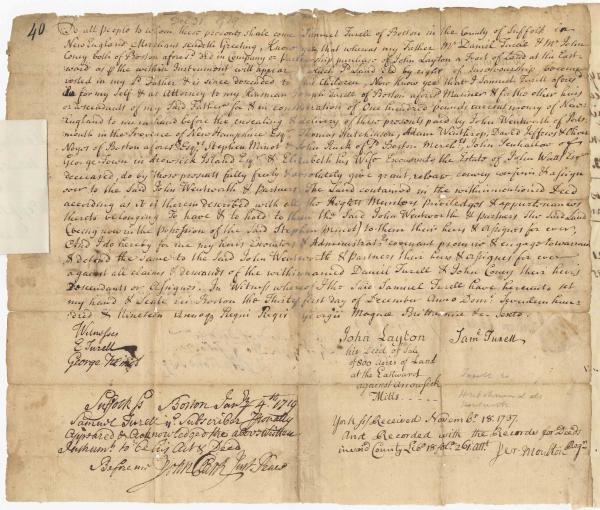 40
To all people to whom these presents shall come Samuel Turell of Boston in the County of Suffolk in
New England Merchant sendeth Greeting Know yee that whereas my Father Mr Daniel Turell & Mr John
Coney both of Boston aforesd did in Company or Partnership purchase of John Layton a Tract of Land at the East
ward as p the within Instrument will appear which sd Land did by right of Survivorship become
vested in my sd Father & is since descended to his Children Now know yee that I Samuel Turell aforesd
do for my Self & as Attorny to my Kinsman of Boston aforesd Mariner & for the other heirs
or descendants of my said Father for & in consideration of One hundred pounds current money of New
England to me in hand before the ensealing & delivery of these presents paid by John Wentworth of Ports
mouth in the Province of New Hampshire Esqr Thomas Hutchinson, Adam Winthrop, David Jeffries & Oliver
Noyes of Boston aforesd Esqrs Stephen Minot & John Ruck of sd Boston Merchts John Penhallow of
George Town in Arowsick Island Esqr & Elizabeth his Wife Executrix to the Estate of John Watts Esqr
deceased, do by these presents fully freely & absolutely give grant, release, convey & assign
over to the said John Wentworth & Partners The Land contained in the within mentioned Deed
according as it is therein described with all the Rights Members Priviledges & appurtenances
thereto belonging To have & to hold to them the said John Wentworth & partners the said Land
(being now in the possession of the said Stephen Minot) to them their heirs & Assignes for ever,
And I do hereby for me my heirs Executors & Administrators covenant promise & engage to warrant
& defend the same to the said John Wentworth & Partners their heirs & assignes for ever
against all claims & demands of the within named Daniel Turell & John Coney their heirs
Descendants or Assignes. In Witness whereof I the said Samuel Turell have hereunto set
my hand & Seale in Boston the Thirty first day of December Anno Domi Seventeen hun-
dred & Nineteen Annoq Regni Regis Georgii Magnae Brittanniae &c Sexto.
Witnesses
E Turell
George
John Layton
his Deed of Sale
of 800 acres of Land
at the Eastward
against Arrowsick
Mills
Saml Turell
Suffolk ss Boston Janry 4th 1719
Samuel Turell ye Subscriber Personally
Appeared & Acknowledged the above Written
Instrumt to be his Act & Deed
Before me John Clark Just Peace
York ss Received Novembr 18: 1737.
And Recorded with the Records for Deeds
in said County Libo 18: folo 261 &c.
Jer: Moulton Regr